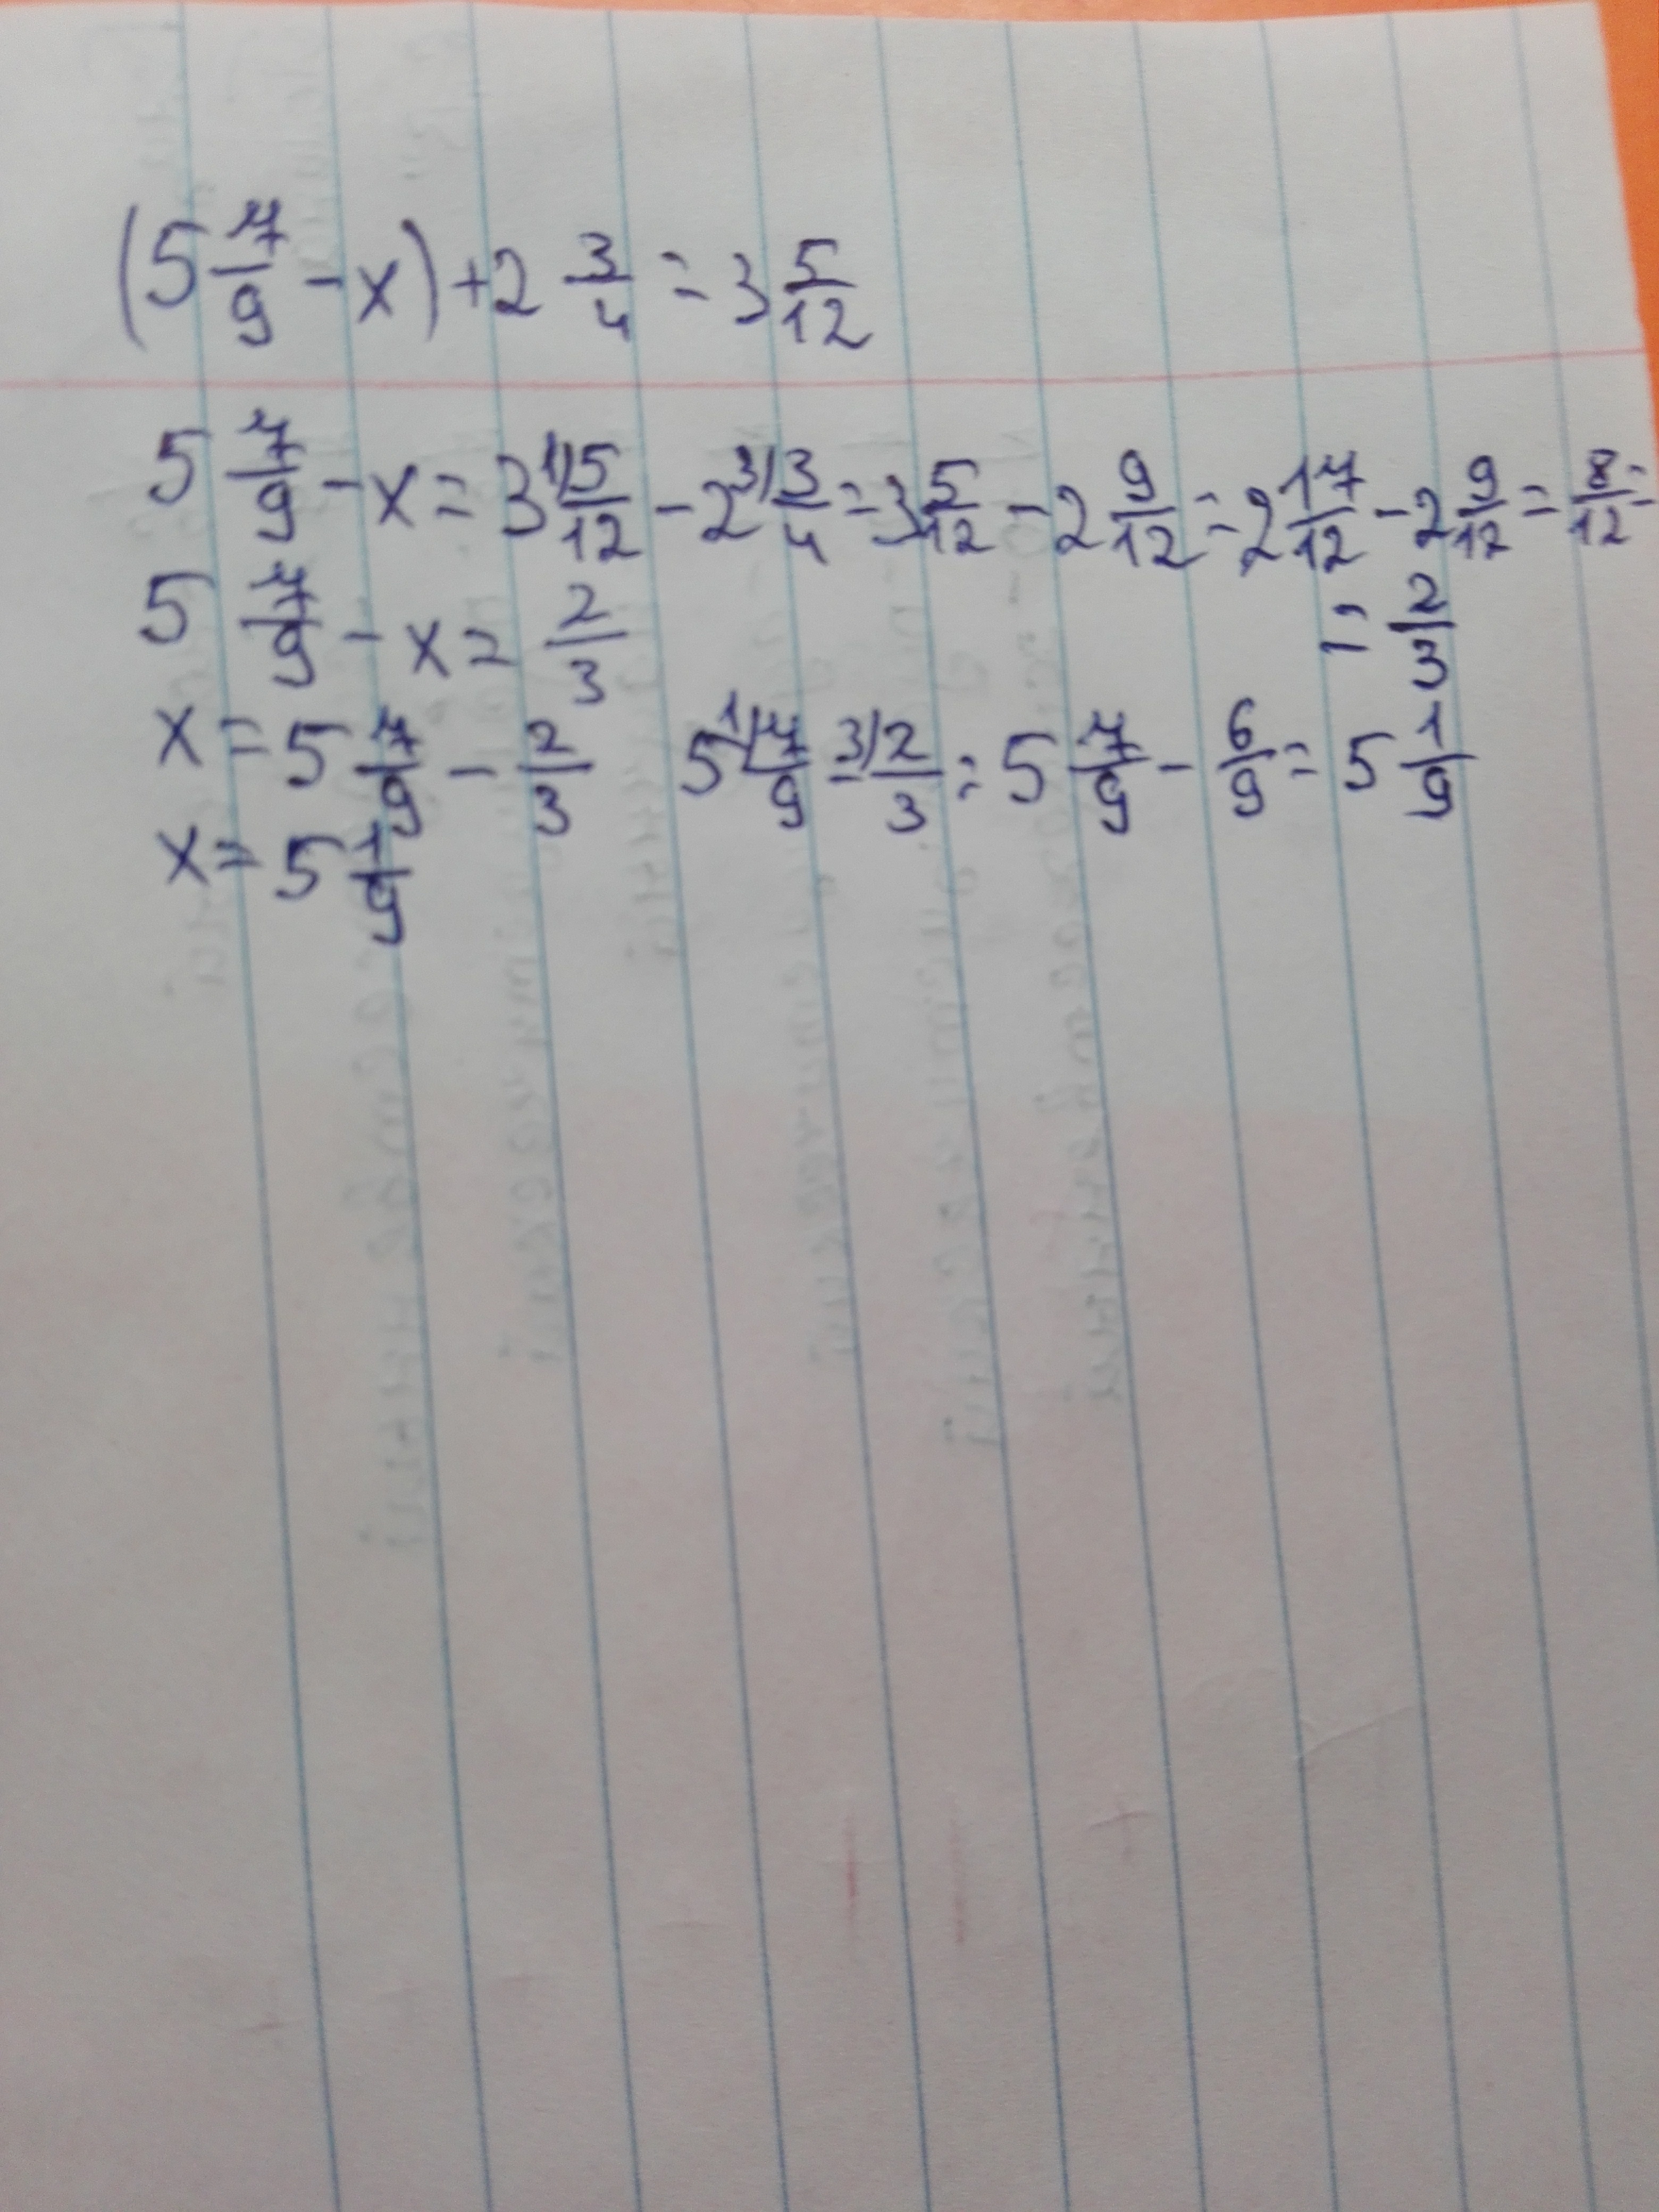 (5 7/9 - x) + 2 3/4 = 3 5/12
5 7/9 - x = 3 ¹⁾5/12 - 2 ³⁾3/4 = 3 5/12 - 2 9/12 = 2 17/12 - 2 9/12 = 8/12 =
= 2/3
5 7/9 - x = 2/3
x = 5 7/9 - 2/3 5 ¹⁾7/9 - ³⁾2/3 = 5 7/9 - 6/9 = 5 1/9
x = 5 1/9